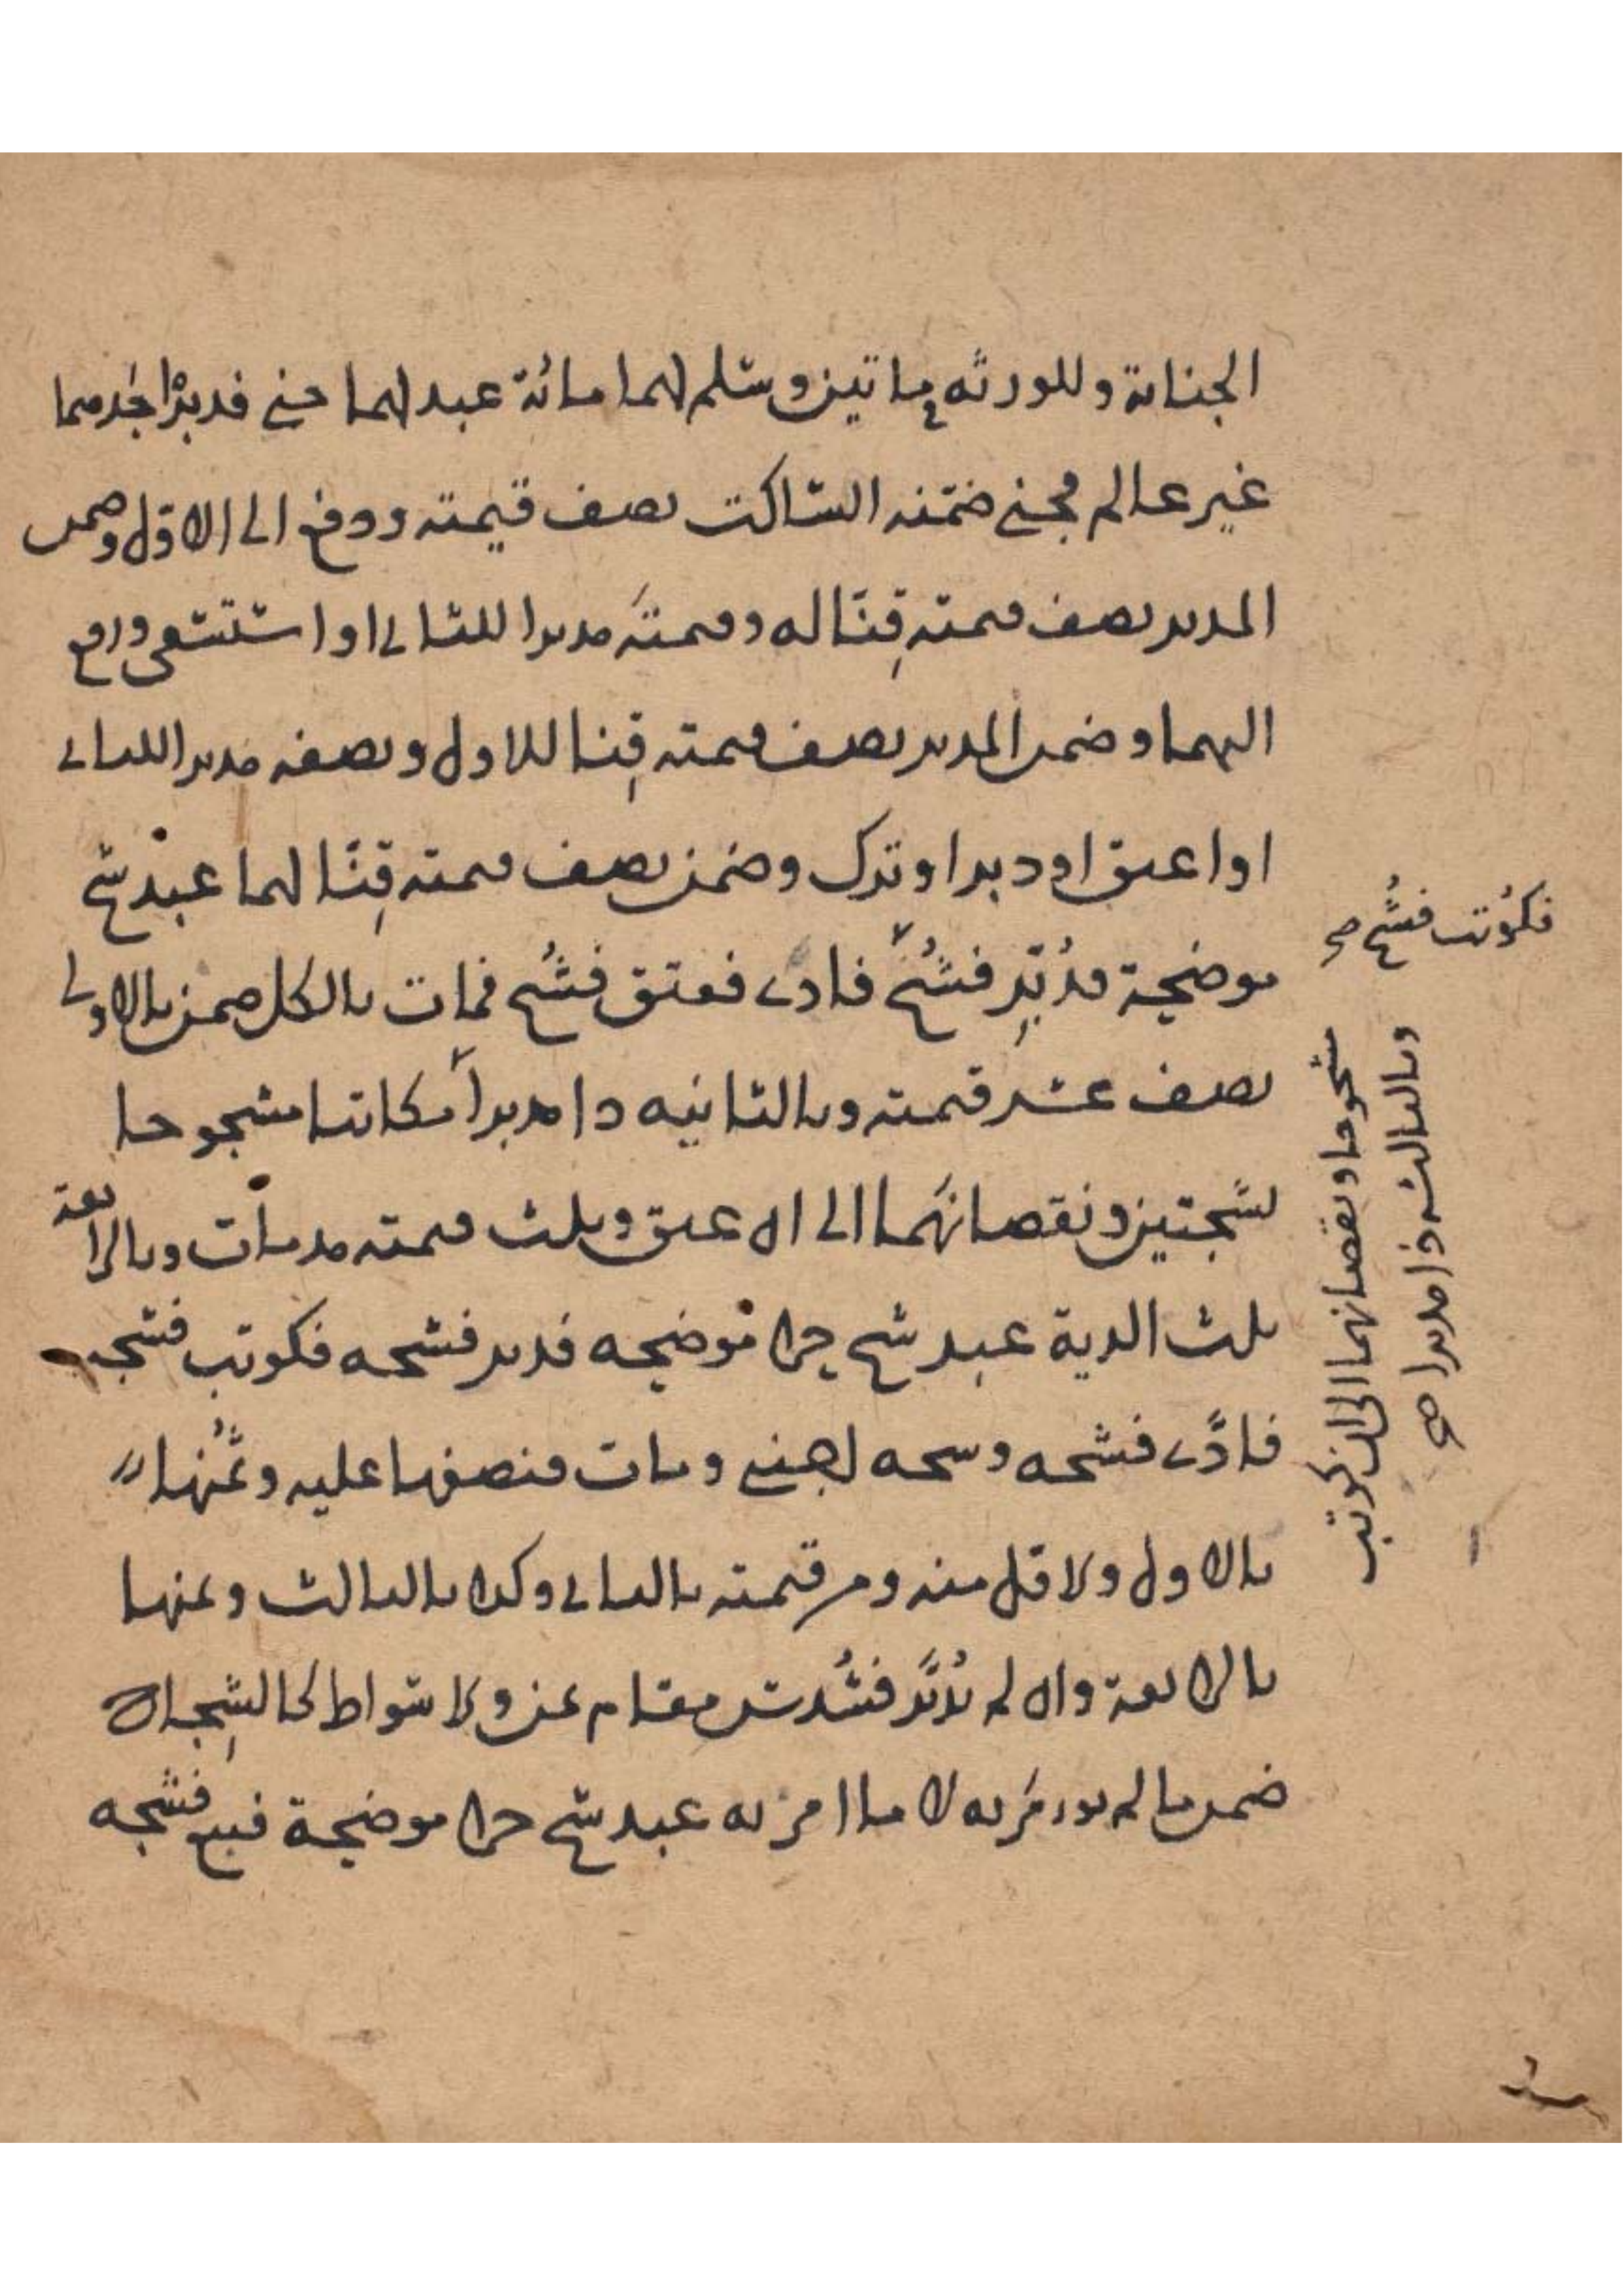 الجناية وللورثه مائتين وسلم لهما مائة عبد لهما جنى فدبر احدهما
غير عالم فجنى ضمنه الساكت نصف قيمته ودفع الى الاول وضمن
المدبر نصف قيمته قنا له وقيمته مدبرا للثانى او استسعى ودفع
اليهما وضمن المدبر نصف قيمته قنا للاول ونصفه مدبرا للثانى
او اعتق او دبر او ترك وضمن نصف قيمته قنا لهما عبد شج
موضحة فدبر فشج فادى فعتق فشج فمات بالكل ضمن بالاولى
نصف عشر قيمته وبالثانيه ذا مدبرا مكاتبا مشجوجا
بشجتين ونقصانهما الى ان عتق وثلث قيمته مذ مات وبالرابعة
ثلث الدية عبد شج حرا موضحه فدبر فشجه فكوتب فشجه
فادى فشجه وشجه اجنبى ومات فنصفها عليه وثمنها
بالاول ولاقل منه ومن قيمته بالثانى وكذا بالثالث وثمنها
بالرابعة وان لم يدبر مقام عن ولا سواط كالشجاج ان
ضمن ما لم يؤمر به لا ما امر به عبد شج حرا موضحة فبيع فشجه
فكوتب فشج صح
وبالثالثه ذا مدبرا صح
مشجوجا ونقصانهما الى ان كوتب